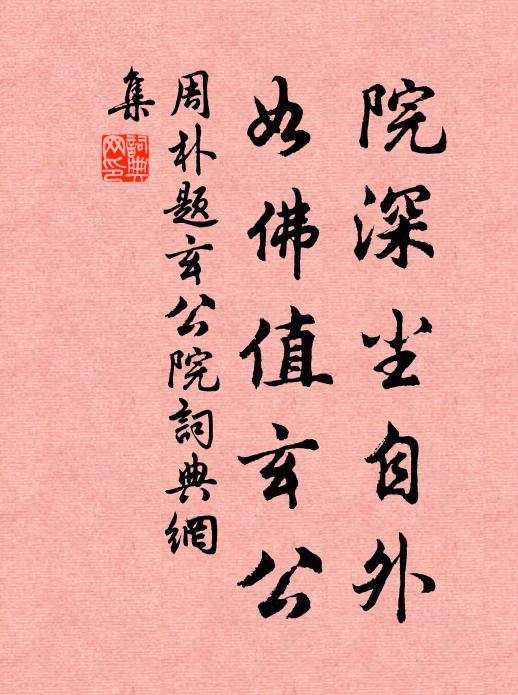 院深尘自外
如佛值玄公
周朴题玄公院詞典網
集
詞典
网印